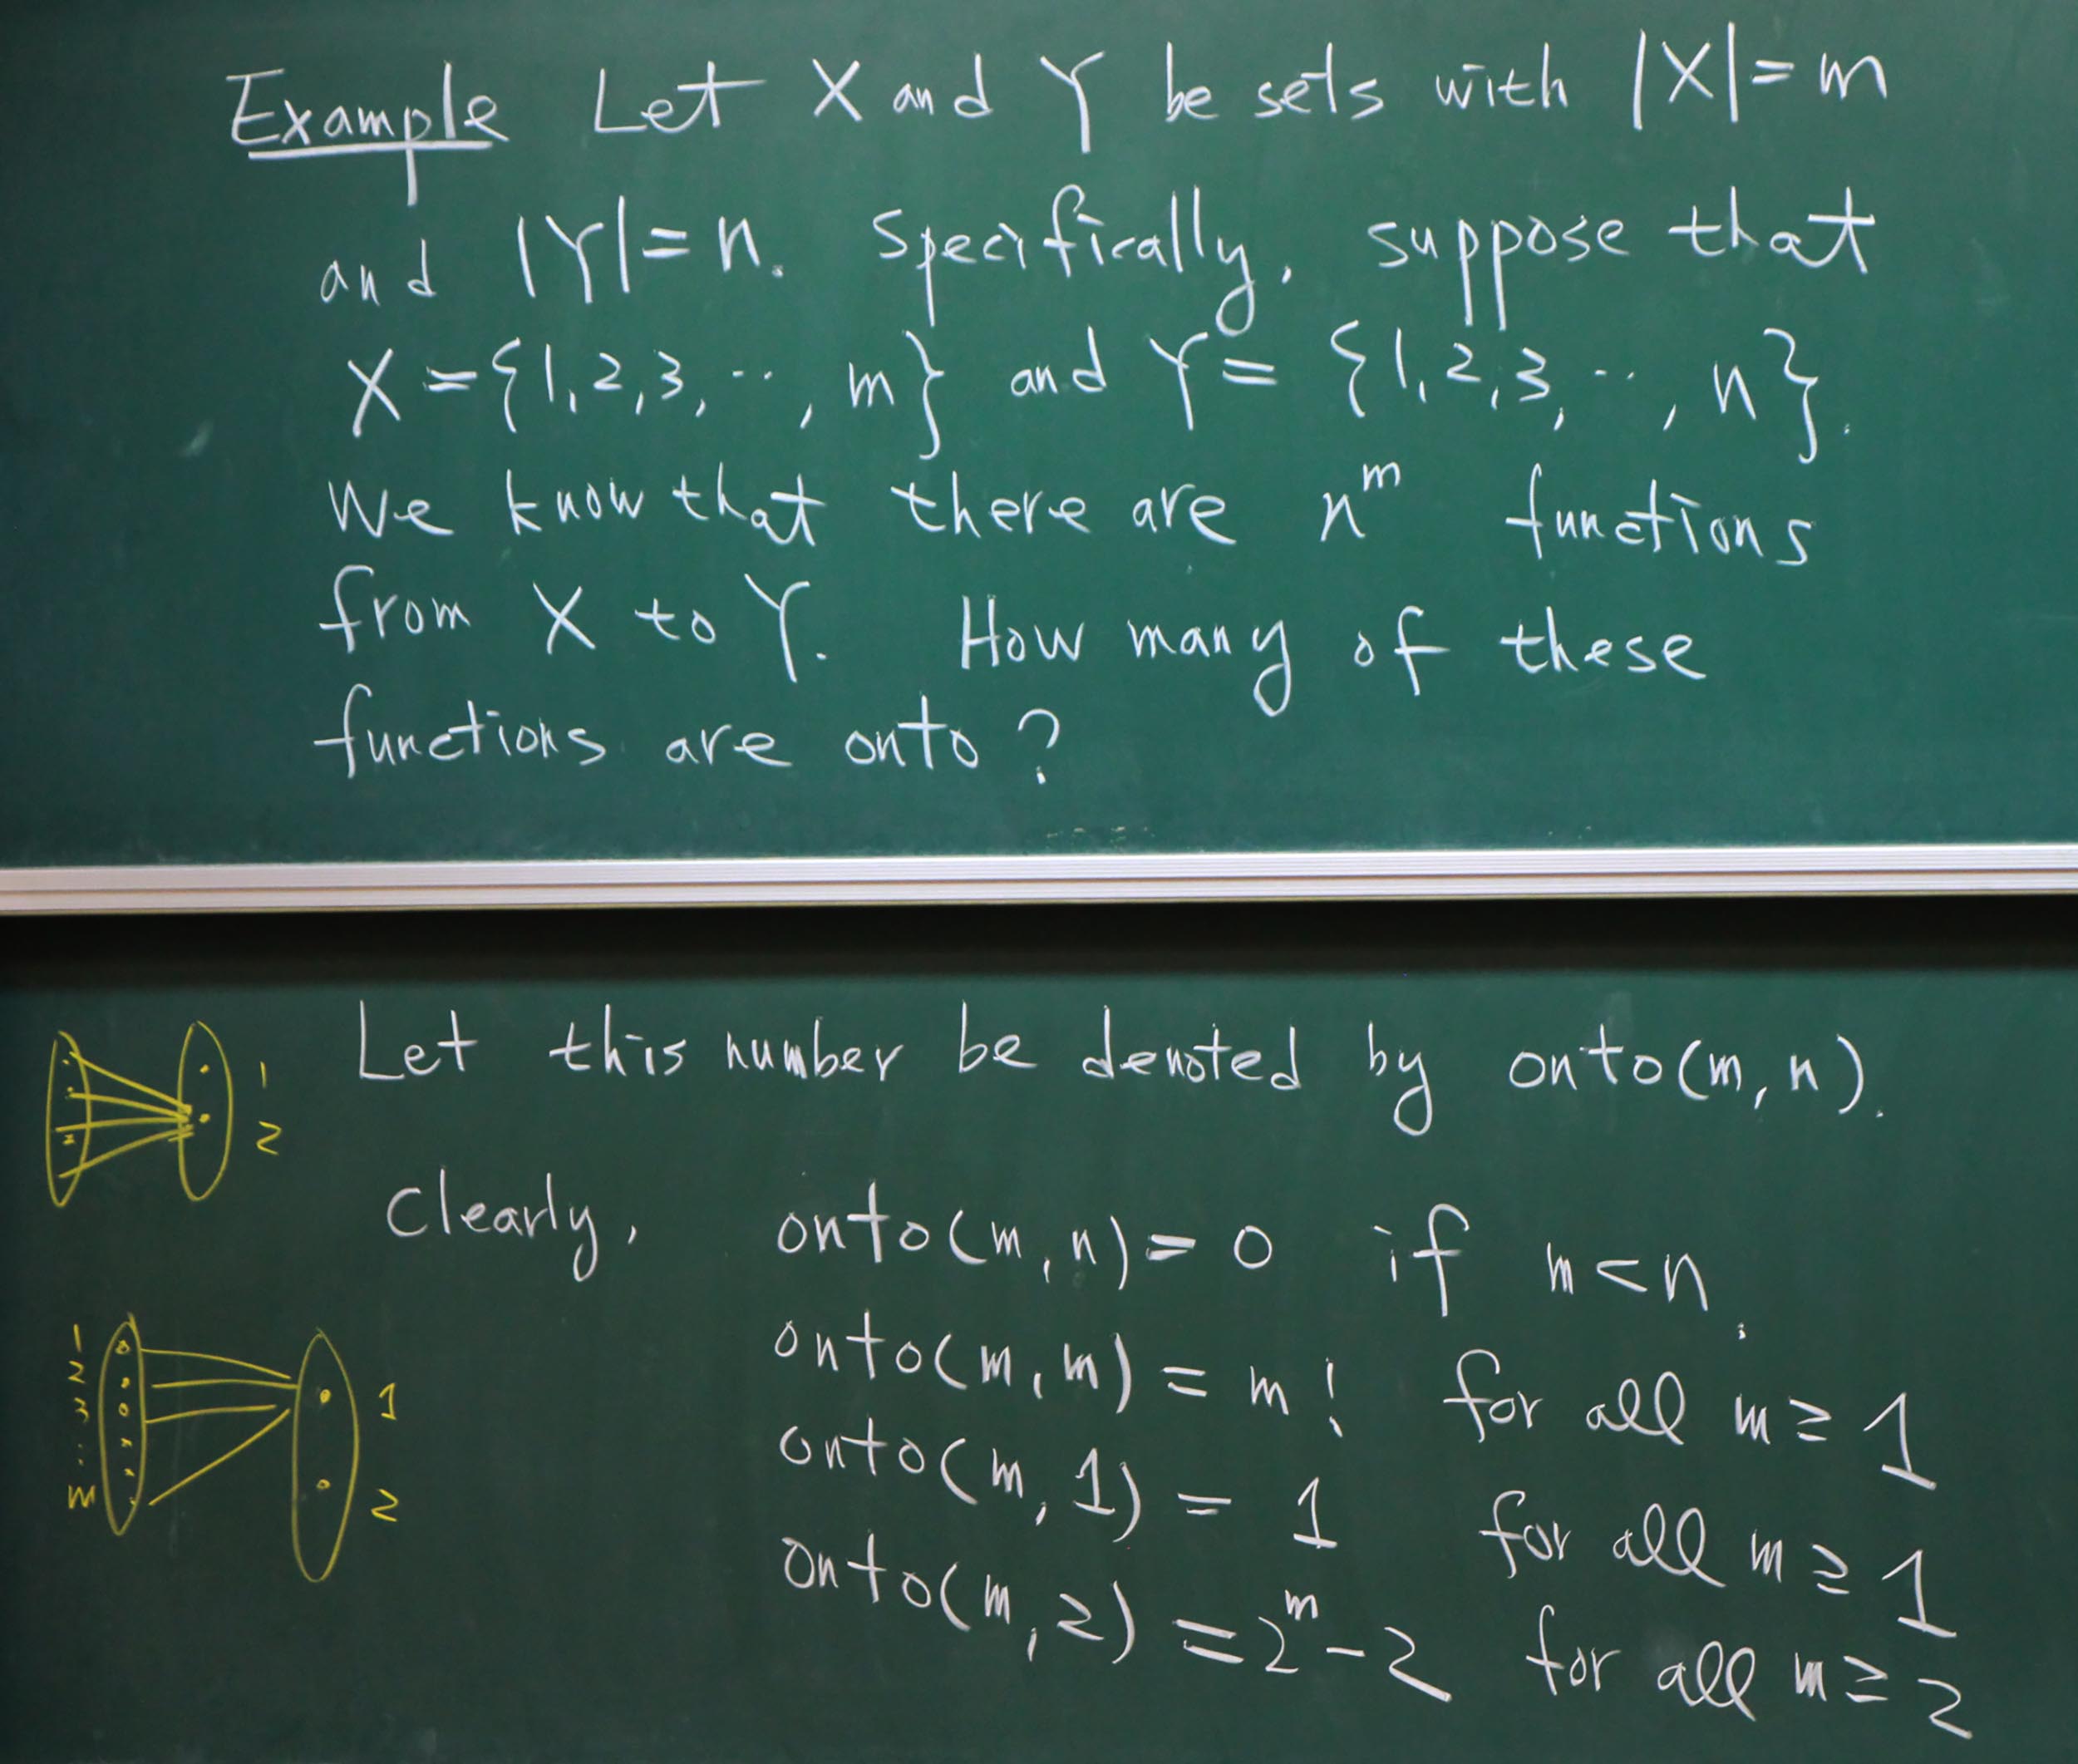 Example Let X and Y be sets with |X|=m
and |Y|=n. Specifically, suppose that
X={1,2,3,..,m} and Y={1,2,3,..,n}.
We know that there are n^m functions
from X to Y. How many of these
functions are onto?
Let this number be denoted by onto(m,n).
1
2
Clearly, onto(m,n)=0 if m<n.
onto(m,m)=m! for all m≥1
onto(m,1)=1 for all m≥1
onto(m,2)=2^m-2 for all m≥2
1
2
3
:
m
1
2